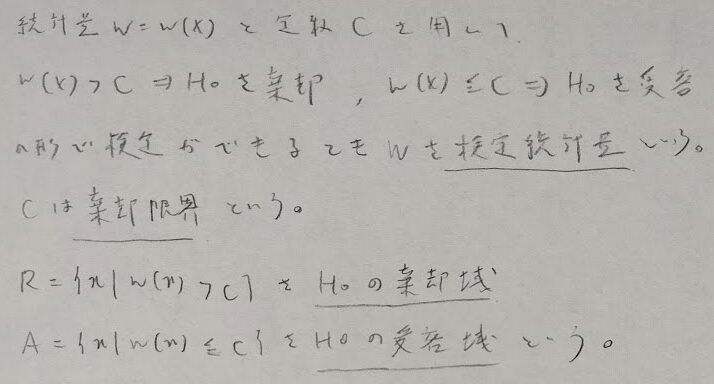 統計量 W = W(X) と定数 C を用いて、
W(X) > C ⇒ H₀ を棄却 , W(X) ≤ C ⇒ H₀ を受容
の形で検定ができるときWを検定統計量という。
Cは棄却限界という。
R = {x | W(x) > C} を H₀ の棄却域
A = {x | W(x) ≤ C} を H₀ の受容域という。